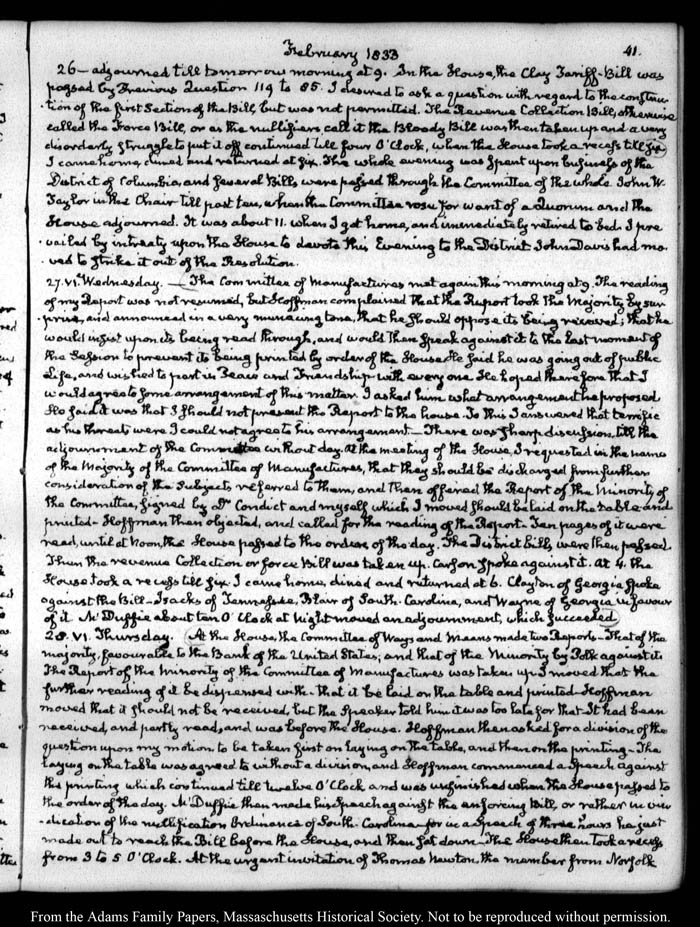 February 1833
41.
26 — adjourned till tomorrow morning at 9. In the House, the Clay Tariff-Bill was
passed by Previous Question 119 to 85. I desired to ask a question with regard to the construc-
-tion of the first Section of the Bill, but was not permitted. The Revenue Collection Bill, otherwise
called the Force Bill, or as the nullifiers call it the Bloody Bill was then taken up and a very
disorderly struggle to put it off continued till four O'Clock, when the House took a recess till six
I came home, dined and returned at six. The whole evening was spent upon business of the
District of Columbia, and several Bills were passed through the Committee of the whole John W.
Taylor in the Chair till past ten, when the Committee rose for want of a Quorum and the
House adjourned. It was about 11. when I got home, and immediately retired to bed. I pre
-vailed by intreaty upon the House to devote this Evening to the District John Davis had mo-
-ved to strike it out of the Resolution.
27. VI. Wednesday. — The Committee of Manufactures met again this morning at 9. The reading
of my Report was not resumed, but Hoffman complained that the Report took the Majority by sur
prise, and announced in a very menacing tone, that he should oppose its being received; that he
would insist upon its being read through, and would then speak against it to the last moment of
the Session to prevent its being printed by order of the House. He said he was going out of public
Life, and wished to part in Peace and Friendship with every one He hoped therefore that I
would agree to some arrangement of this matter. I asked him what arrangement he proposed
He said it was that I should not present the Report to the house. To this I answered that terrific
as his threats were I could not agree to his arrangement — There was sharp discussion till the
adjournment of the Committee without day. At the meeting of the House, I requested in the name
of the Majority of the Committee of Manufactures, that they should be discharged from further
consideration of the Subjects referred to them, and then offered the Report of the Minority of
the Committee, signed by Dr Condict and myself which I moved should be laid on the table and
printed — Hoffman then objected, and called for the reading of the Report. Ten pages of it were
read, until at Noon, the House passed to the orders of the day. The District bills were then passed
Then the revenue Collection or force Bill was taken up. Carson spoke against it. At 4. the
House took a recess till six. I came home, dined and returned at 6. Clayton of Georgia spoke
against the Bill — Isacks of Tennessee, Blair of South-Carolina, and Wayne of Georgia in favour
of it. McDuffie about ten O'Clock at Night moved an adjournment, which succeeded
28. VI. Thursday. At the House, the Committee of Ways and Means made two Reports — That of the
majority, favourable to the Bank of the United States; and that of the Minority by Polk against it.
The Report of the Minority of the Committee of Manufactures was taken up. I moved that the
further reading of it be dispensed with — that it be laid on the table and printed — Hoffman
moved that it should not be received, but the Speaker told him it was too late for that — It had been
received, and partly read, and was before the House. Hoffman then asked for a division of the
question upon my motion to be taken first on laying on the table, and then on the printing — The
laying on the table was agreed to without a division, and Hoffman commenced a Speech against
the printing which continued till twelve O'Clock and was unfinished when the House passed to
the order of the day. McDuffie then made his Speech against the enforcing Bill, or rather in vin
-dication of the nullification Ordinance of South-Carolina — for in a Speech of three hours he just
made out to reach the Bill before the House, and then sat down — The House then took a recess
from 3 to 5 O'Clock. At the urgent invitation of Thomas Newton, the member from Norfolk
From the Adams Family Papers, Massachusetts Historical Society. Not to be reproduced without permission.